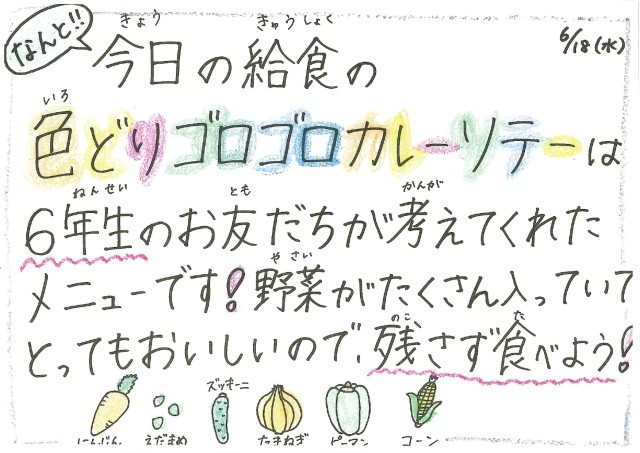 なんと!!
6/18(水)
きょう きゅうしょく
今日の給食の
いろ
色どりゴロゴロカレーソテーは
ねんせい とも かんが
6年生のお友だちが考えてくれた
やさい
メニューです!野菜がたくさん入っていて
のこ た
とってもおいしいので、残さず食べよう!
ズッキーニ
にんじん えだまめ たまねぎ ピーマン コーン